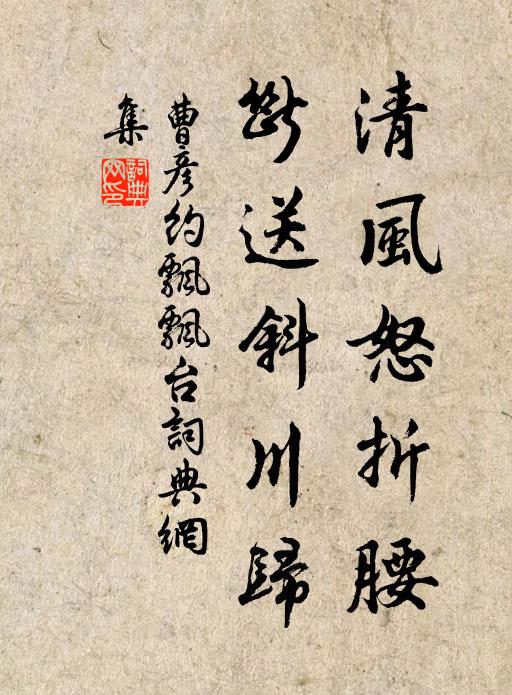 清風怒折腰
斷送斜川歸
曹彥約飄飄台詞典網
集
詞典
网印